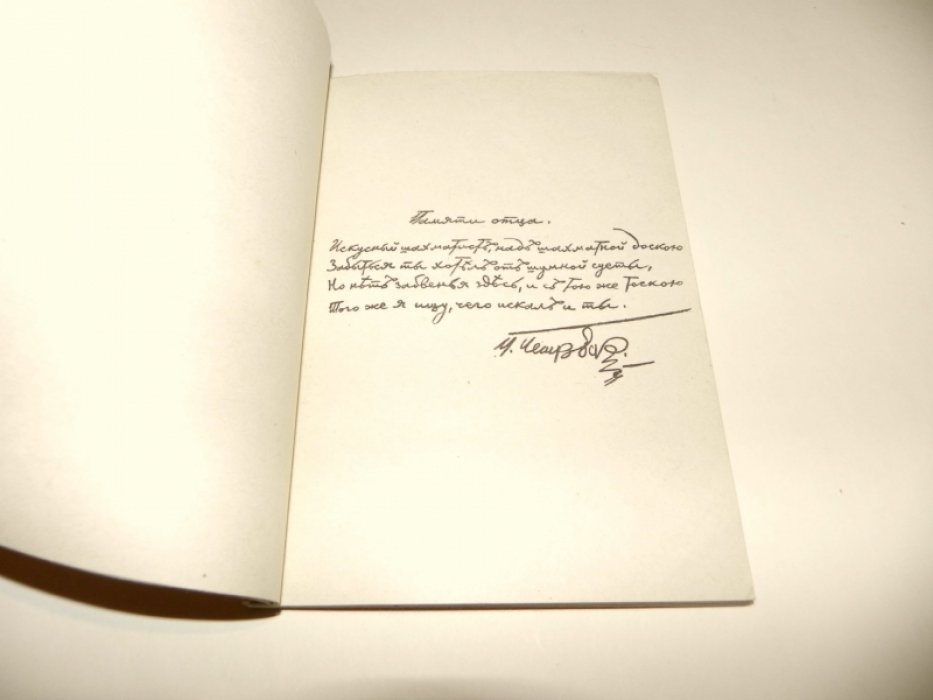 Памяти отца.
Искусный шахматистъ, надъ шахматной доскою
Забыться ты хотѣлъ отъ шумной суеты,
Но нѣтъ забвенья здѣсь, и съ тою же тоскою
Того же я ищу, чего искалъ и ты.